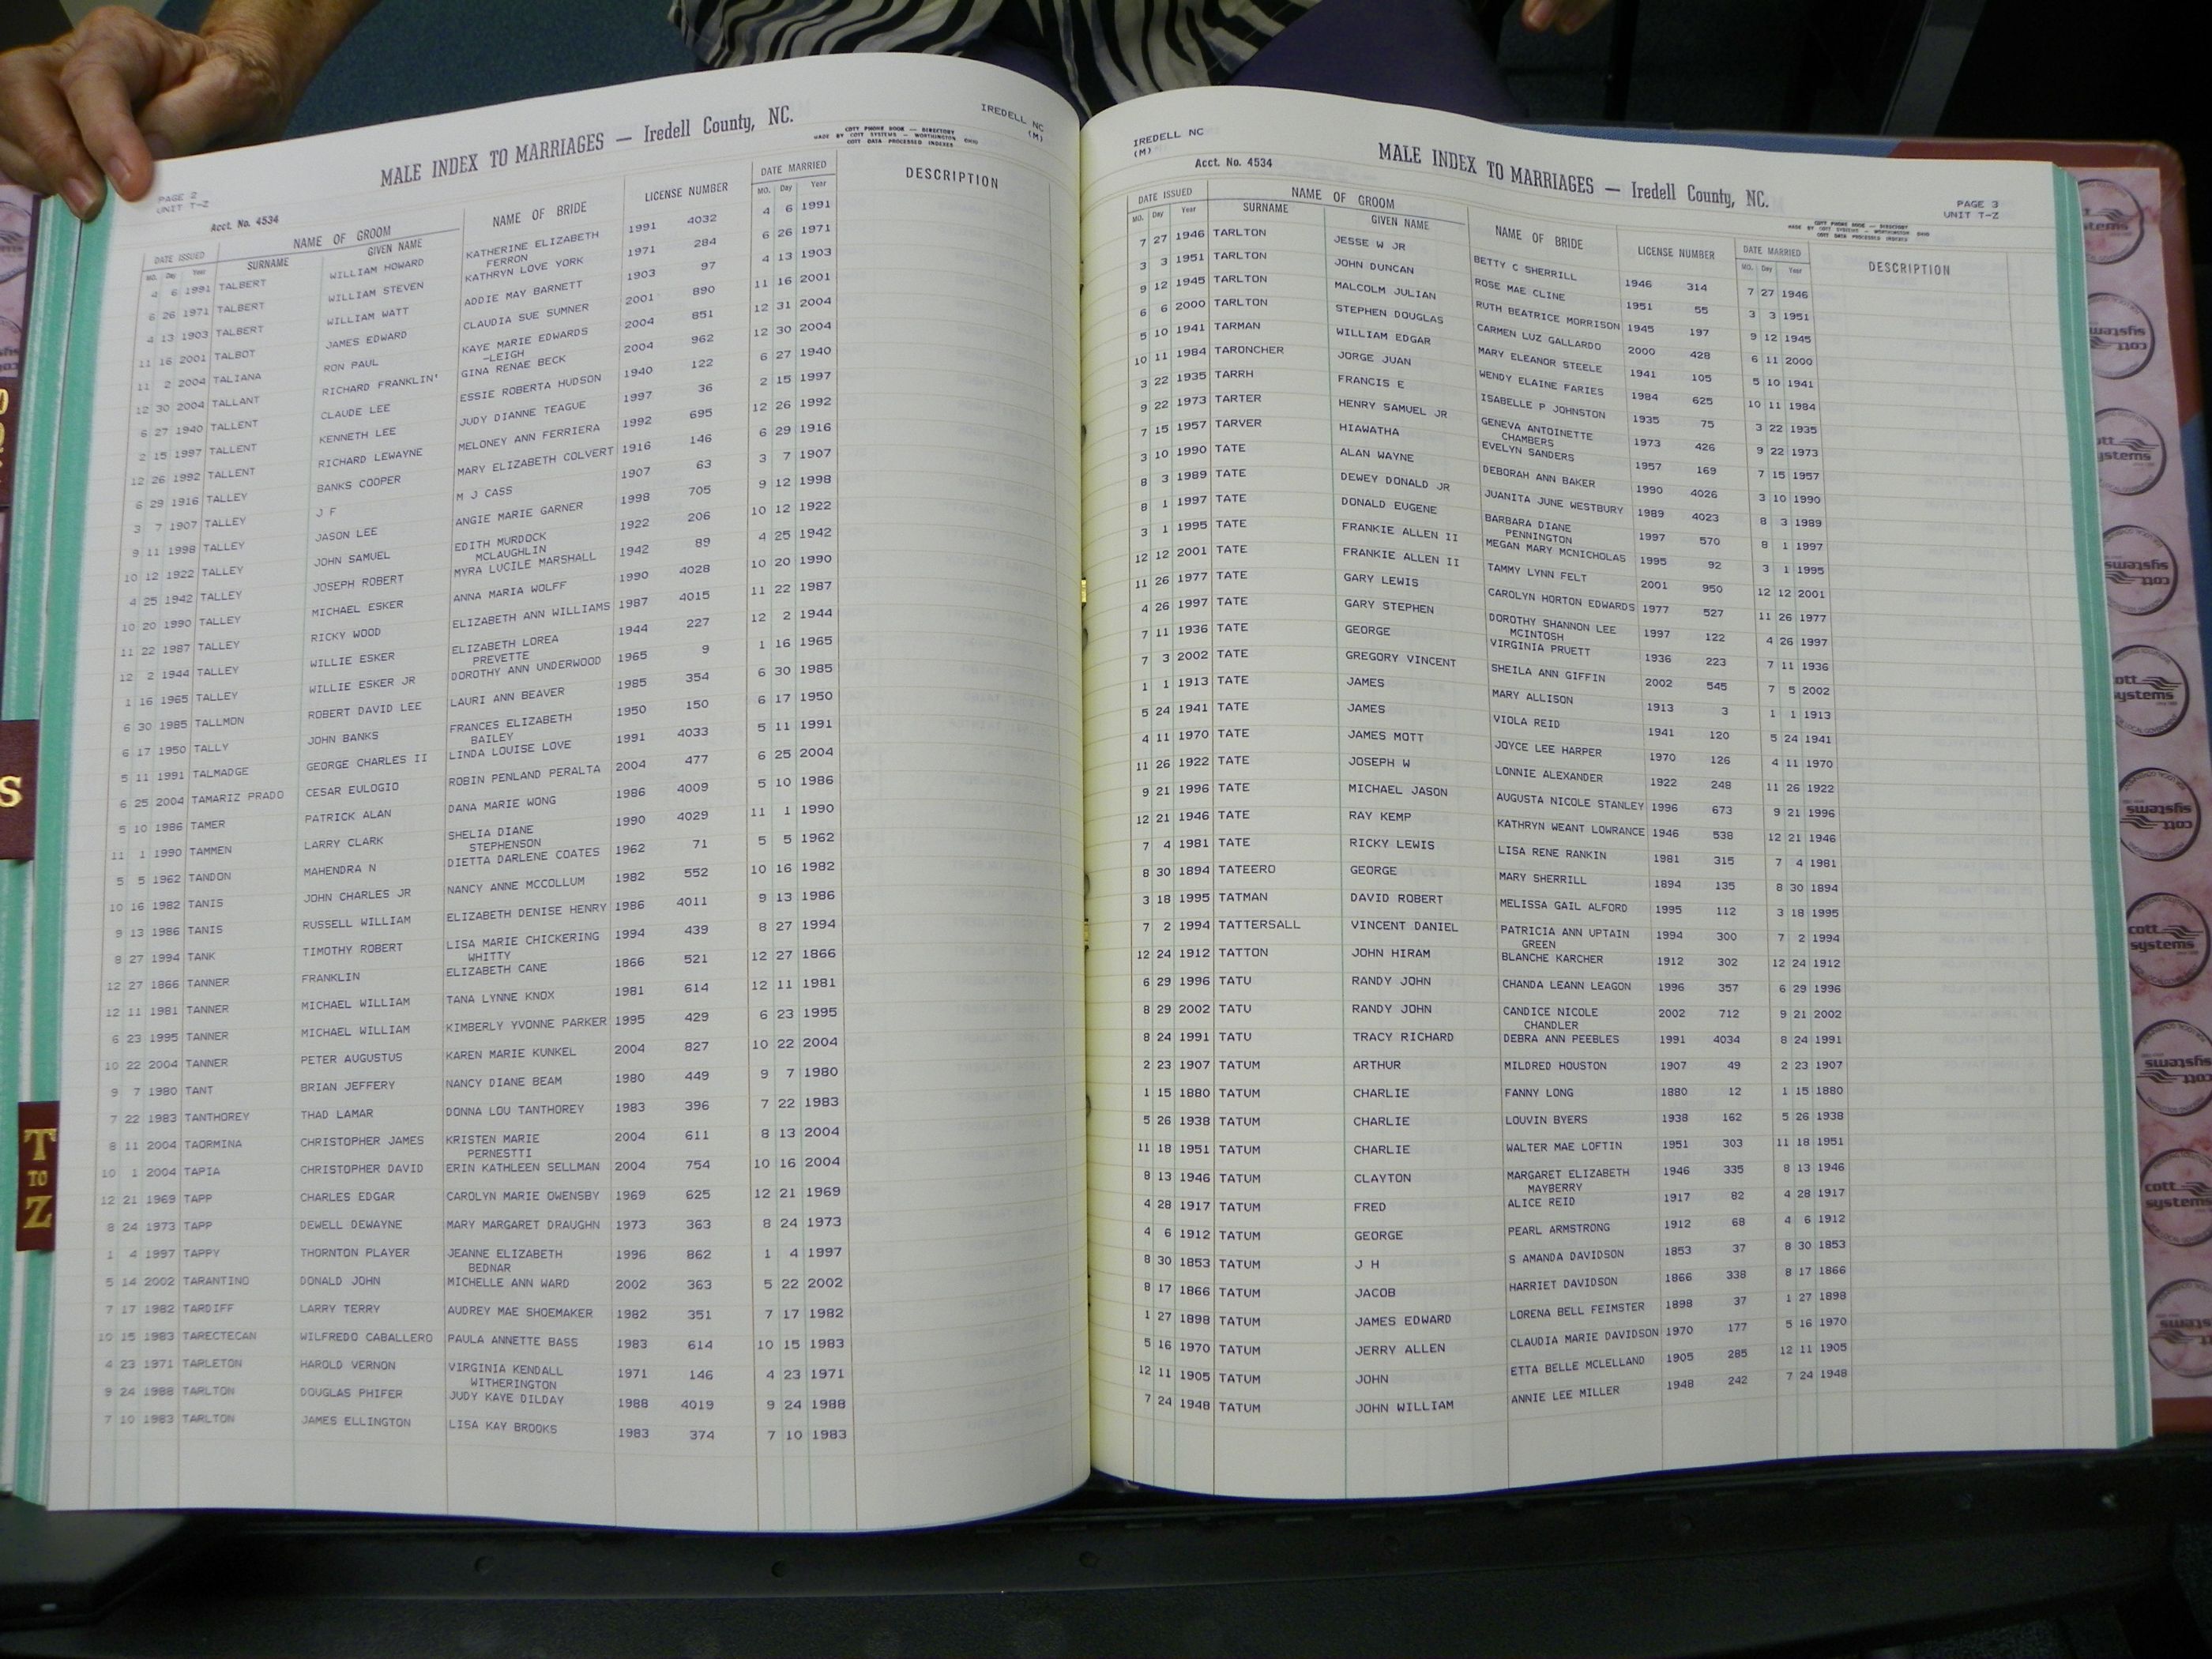 MALE INDEX TO MARRIAGES — Iredell County, NC.
IREDELL NC
(M)
COTT PHONE BOOK — DIRECTORY
MADE BY COTT SYSTEMS — WORTHINGTON OHIO
COTT DATA PROCESSED INDEXES
PAGE 2
UNIT T-Z
Acct. No. 4534
DATE ISSUED NAME OF GROOM NAME OF BRIDE LICENSE NUMBER DATE MARRIED DESCRIPTION
MO. Day Year SURNAME GIVEN NAME MO. Day Year
4 6 1991 TALBERT WILLIAM HOWARD KATHERINE ELIZABETH 1991 4032 4 6 1991
FERRON
6 26 1971 TALBERT WILLIAM STEVEN KATHRYN LOVE YORK 1971 284 6 26 1971
4 13 1903 TALBERT WILLIAM WATT ADDIE MAY BARNETT 1903 97 4 13 1903
11 16 2001 TALBOT JAMES EDWARD CLAUDIA SUE SUMNER 2001 890 11 16 2001
11 2 2004 TALIANA RON PAUL KAYE MARIE EDWARDS 2004 851 12 31 2004
-LEIGH
12 30 2004 TALLANT RICHARD FRANKLIN' GINA RENAE BECK 2004 962 12 30 2004
6 27 1940 TALLENT CLAUDE LEE ESSIE ROBERTA HUDSON 1940 122 6 27 1940
2 15 1997 TALLENT KENNETH LEE JUDY DIANNE TEAGUE 1997 36 2 15 1997
12 26 1992 TALLENT RICHARD LEWAYNE MELONEY ANN FERRIERA 1992 695 12 26 1992
6 29 1916 TALLEY BANKS COOPER MARY ELIZABETH COLVERT 1916 146 6 29 1916
3 7 1907 TALLEY J F M J CASS 1907 63 3 7 1907
9 11 1998 TALLEY JASON LEE ANGIE MARIE GARNER 1998 705 9 12 1998
10 12 1922 TALLEY JOHN SAMUEL EDITH MURDOCK 1922 206 10 12 1922
MCLAUGHLIN
4 25 1942 TALLEY JOSEPH ROBERT MYRA LUCILE MARSHALL 1942 89 4 25 1942
10 20 1990 TALLEY MICHAEL ESKER ANNA MARIA WOLFF 1990 4028 10 20 1990
11 22 1987 TALLEY RICKY WOOD ELIZABETH ANN WILLIAMS 1987 4015 11 22 1987
12 2 1944 TALLEY WILLIE ESKER ELIZABETH LOREA 1944 227 12 2 1944
PREVETTE
1 16 1965 TALLEY WILLIE ESKER JR DOROTHY ANN UNDERWOOD 1965 9 1 16 1965
6 30 1985 TALLMON ROBERT DAVID LEE LAURI ANN BEAVER 1985 354 6 30 1985
6 17 1950 TALLY JOHN BANKS FRANCES ELIZABETH 1950 150 6 17 1950
BAILEY
5 11 1991 TALMADGE GEORGE CHARLES II LINDA LOUISE LOVE 1991 4033 5 11 1991
6 25 2004 TAMARIZ PRADO CESAR EULOGIO ROBIN PENLAND PERALTA 2004 477 6 25 2004
5 10 1986 TAMER PATRICK ALAN DANA MARIE WONG 1986 4009 5 10 1986
11 1 1990 TAMMEN LARRY CLARK SHELIA DIANE 1990 4029 11 1 1990
STEPHENSON
5 5 1962 TANDON MAHENDRA N DIETTA DARLENE COATES 1962 71 5 5 1962
10 16 1982 TANIS JOHN CHARLES JR NANCY ANNE MCCOLLUM 1982 552 10 16 1982
9 13 1986 TANIS RUSSELL WILLIAM ELIZABETH DENISE HENRY 1986 4011 9 13 1986
8 27 1994 TANK TIMOTHY ROBERT LISA MARIE CHICKERING 1994 439 8 27 1994
WHITTY
12 27 1866 TANNER FRANKLIN ELIZABETH CANE 1866 521 12 27 1866
12 11 1981 TANNER MICHAEL WILLIAM TANA LYNNE KNOX 1981 614 12 11 1981
6 23 1995 TANNER MICHAEL WILLIAM KIMBERLY YVONNE PARKER 1995 429 6 23 1995
10 22 2004 TANNER PETER AUGUSTUS KAREN MARIE KUNKEL 2004 827 10 22 2004
9 7 1980 TANT BRIAN JEFFERY NANCY DIANE BEAM 1980 449 9 7 1980
7 22 1983 TANTHOREY THAD LAMAR DONNA LOU TANTHOREY 1983 396 7 22 1983
8 11 2004 TAORMINA CHRISTOPHER JAMES KRISTEN MARIE 2004 611 8 13 2004
PERNESTTI
10 1 2004 TAPIA CHRISTOPHER DAVID ERIN KATHLEEN SELLMAN 2004 754 10 16 2004
12 21 1969 TAPP CHARLES EDGAR CAROLYN MARIE OWENSBY 1969 625 12 21 1969
8 24 1973 TAPP DEWELL DEWAYNE MARY MARGARET DRAUGHN 1973 363 8 24 1973
1 4 1997 TAPPY THORNTON PLAYER JEANNE ELIZABETH 1996 862 1 4 1997
BEDNAR
5 14 2002 TARANTINO DONALD JOHN MICHELLE ANN WARD 2002 363 5 22 2002
7 17 1982 TARDIFF LARRY TERRY AUDREY MAE SHOEMAKER 1982 351 7 17 1982
10 15 1983 TARECTECAN WILFREDO CABALLERO PAULA ANNETTE BASS 1983 614 10 15 1983
4 23 1971 TARLETON HAROLD VERNON VIRGINIA KENDALL 1971 146 4 23 1971
WITHERINGTON
9 24 1988 TARLTON DOUGLAS PHIFER JUDY KAYE DILDAY 1988 4019 9 24 1988
7 10 1983 TARLTON JAMES ELLINGTON LISA KAY BROOKS 1983 374 7 10 1983
S
T
TO
Z
IREDELL NC
(M)
MALE INDEX TO MARRIAGES — Iredell County, NC.
Acct. No. 4534
PAGE 3
UNIT T-Z
COTT PHONE BOOK — DIRECTORY
MADE BY COTT SYSTEMS — WORTHINGTON OHIO
COTT DATA PROCESSED INDEXES
DATE ISSUED NAME OF GROOM NAME OF BRIDE LICENSE NUMBER DATE MARRIED DESCRIPTION
MO. Day Year SURNAME GIVEN NAME MO. Day Year
7 27 1946 TARLTON JESSE W JR BETTY C SHERRILL 1946 314 7 27 1946
3 3 1951 TARLTON JOHN DUNCAN ROSE MAE CLINE 1951 55 3 3 1951
9 12 1945 TARLTON MALCOLM JULIAN RUTH BEATRICE MORRISON 1945 197 9 12 1945
6 6 2000 TARLTON STEPHEN DOUGLAS CARMEN LUZ GALLARDO 2000 428 6 11 2000
5 10 1941 TARMAN WILLIAM EDGAR MARY ELEANOR STEELE 1941 105 5 10 1941
10 11 1984 TARONCHER JORGE JUAN WENDY ELAINE FARIES 1984 625 10 11 1984
3 22 1935 TARRH FRANCIS E ISABELLE P JOHNSTON 1935 75 3 22 1935
9 22 1973 TARTER HENRY SAMUEL JR GENEVA ANTOINETTE 1973 426 9 22 1973
CHAMBERS
7 15 1957 TARVER HIAWATHA EVELYN SANDERS 1957 169 7 15 1957
3 10 1990 TATE ALAN WAYNE DEBORAH ANN BAKER 1990 4026 3 10 1990
8 3 1989 TATE DEWEY DONALD JR JUANITA JUNE WESTBURY 1989 4023 8 3 1989
8 1 1997 TATE DONALD EUGENE BARBARA DIANE 1997 570 8 1 1997
PENNINGTON
3 1 1995 TATE FRANKIE ALLEN II MEGAN MARY MCNICHOLAS 1995 92 3 1 1995
12 12 2001 TATE FRANKIE ALLEN II TAMMY LYNN FELT 2001 950 12 12 2001
11 26 1977 TATE GARY LEWIS CAROLYN HORTON EDWARDS 1977 527 11 26 1977
4 26 1997 TATE GARY STEPHEN DOROTHY SHANNON LEE 1997 122 4 26 1997
MCINTOSH
7 11 1936 TATE GEORGE VIRGINIA PRUETT 1936 223 7 11 1936
7 3 2002 TATE GREGORY VINCENT SHEILA ANN GIFFIN 2002 545 7 5 2002
1 1 1913 TATE JAMES MARY ALLISON 1913 3 1 1 1913
5 24 1941 TATE JAMES VIOLA REID 1941 120 5 24 1941
4 11 1970 TATE JAMES MOTT JOYCE LEE HARPER 1970 126 4 11 1970
11 26 1922 TATE JOSEPH W LONNIE ALEXANDER 1922 248 11 26 1922
9 21 1996 TATE MICHAEL JASON AUGUSTA NICOLE STANLEY 1996 673 9 21 1996
12 21 1946 TATE RAY KEMP KATHRYN WEANT LOWRANCE 1946 538 12 21 1946
7 4 1981 TATE RICKY LEWIS LISA RENE RANKIN 1981 315 7 4 1981
8 30 1894 TATEERO GEORGE MARY SHERRILL 1894 135 8 30 1894
3 18 1995 TATMAN DAVID ROBERT MELISSA GAIL ALFORD 1995 112 3 18 1995
7 2 1994 TATTERSALL VINCENT DANIEL PATRICIA ANN UPTAIN 1994 300 7 2 1994
GREEN
12 24 1912 TATTON JOHN HIRAM BLANCHE KARCHER 1912 302 12 24 1912
6 29 1996 TATU RANDY JOHN CHANDA LEANN LEAGON 1996 357 6 29 1996
8 29 2002 TATU RANDY JOHN CANDICE NICOLE 2002 712 9 21 2002
CHANDLER
8 24 1991 TATU TRACY RICHARD DEBRA ANN PEEBLES 1991 4034 8 24 1991
2 23 1907 TATUM ARTHUR MILDRED HOUSTON 1907 49 2 23 1907
1 15 1880 TATUM CHARLIE FANNY LONG 1880 12 1 15 1880
5 26 1938 TATUM CHARLIE LOUVIN BYERS 1938 162 5 26 1938
11 18 1951 TATUM CHARLIE WALTER MAE LOFTIN 1951 303 11 18 1951
8 13 1946 TATUM CLAYTON MARGARET ELIZABETH 1946 335 8 13 1946
MAYBERRY
4 28 1917 TATUM FRED ALICE REID 1917 82 4 28 1917
4 6 1912 TATUM GEORGE PEARL ARMSTRONG 1912 68 4 6 1912
8 30 1853 TATUM J H S AMANDA DAVIDSON 1853 37 8 30 1853
8 17 1866 TATUM JACOB HARRIET DAVIDSON 1866 338 8 17 1866
1 27 1898 TATUM JAMES EDWARD LORENA BELL FEIMSTER 1898 37 1 27 1898
5 16 1970 TATUM JERRY ALLEN CLAUDIA MARIE DAVIDSON 1970 177 5 16 1970
12 11 1905 TATUM JOHN ETTA BELLE MCLELLAND 1905 285 12 11 1905
7 24 1948 TATUM JOHN WILLIAM ANNIE LEE MILLER 1948 242 7 24 1948
cott
systems